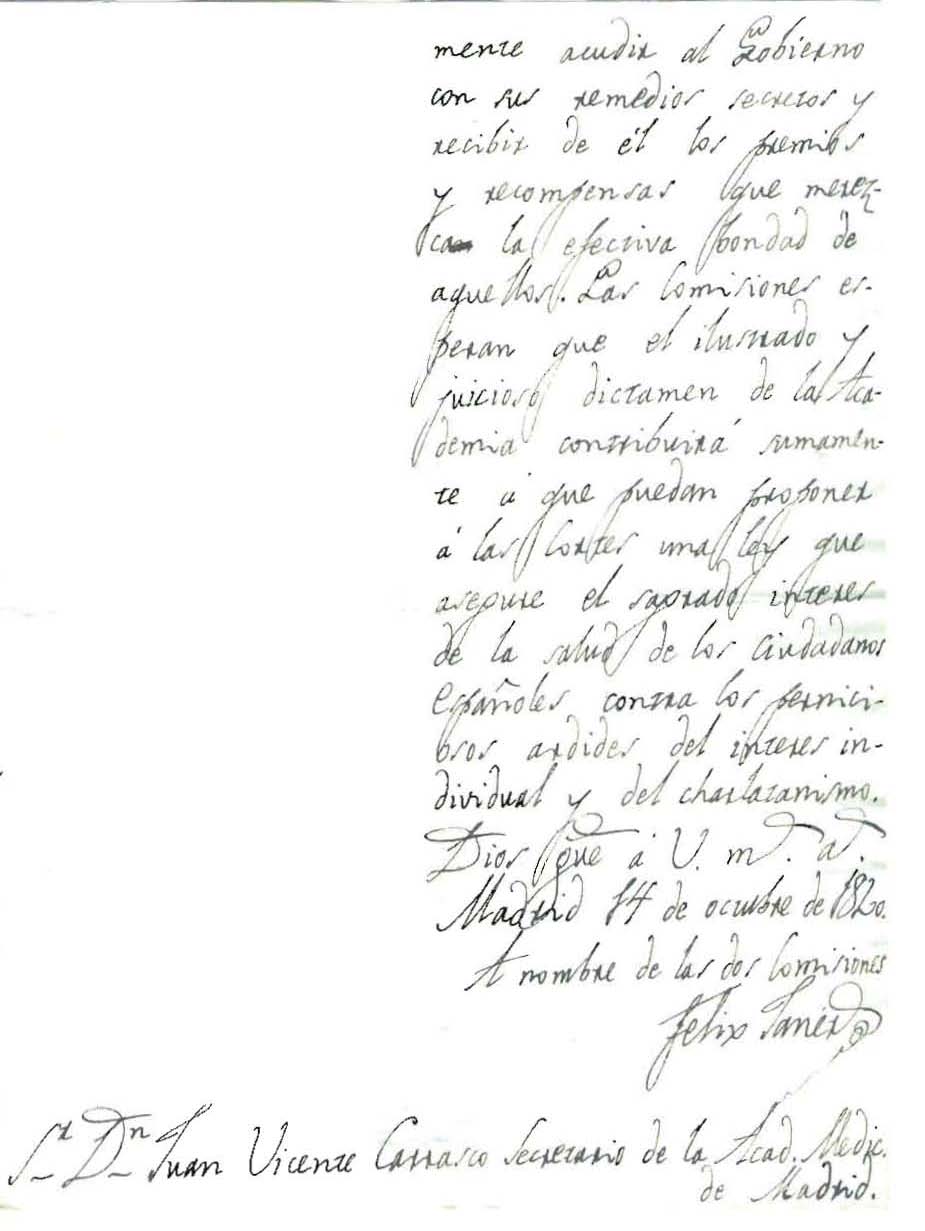 mente acudir al Gobierno
con sus remedios secretos y
recibir de él los premios
y recompensas que merez-
ca la efectiva bondad de
aquellos. Las Comisiones es-
peran que el ilustrado y
juicioso dictamen de la Aca-
demia contribuirá sumamen-
te á que puedan proponer
á las Cortes una ley que
asegure el sagrado interes
de la salud de los Ciudadanos
Españoles contra los pernici-
osos ardides del interes in-
dividual y del charlatanismo.
Dios gũe á V. m.ˢ a.ˢ
Madrid 14 de octubre de 1820.
A nombre de las dos Comisiones
Felix Janer
S.ʳ D.ⁿ Juan Vicente Carrasco Secretario de la Acad. Medic.
de Madrid.